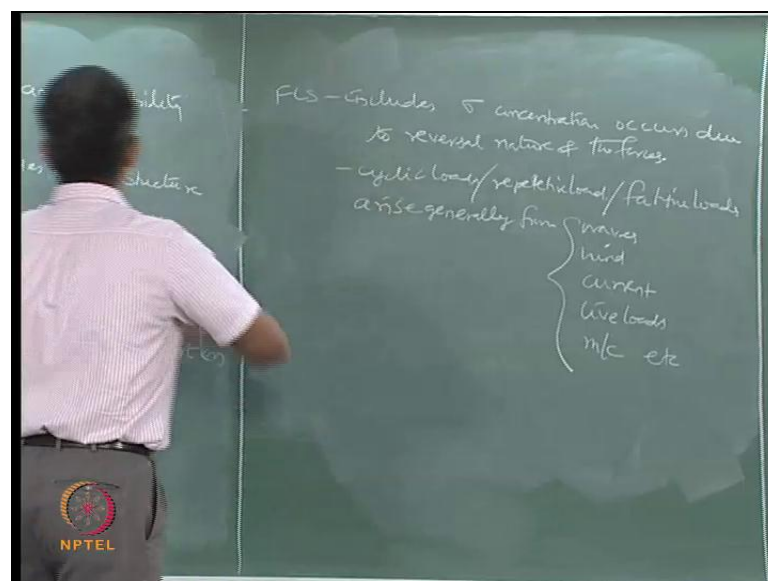 sibility
structure
FLS - includes σ concentration occurs due
to reversal nature of the forces.
- cyclic loads/repetitive load/fatigue loads
arise generally from
waves
wind
current
live loads
m/c etc
NPTEL